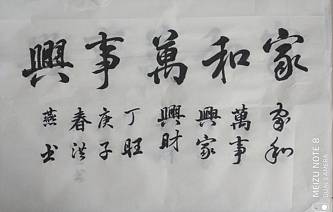 家和萬事興
家和
萬事
興家
興財
丁旺
庚子
春洪
燕书
MEIZU NOTE 8
DUAL CAMERA